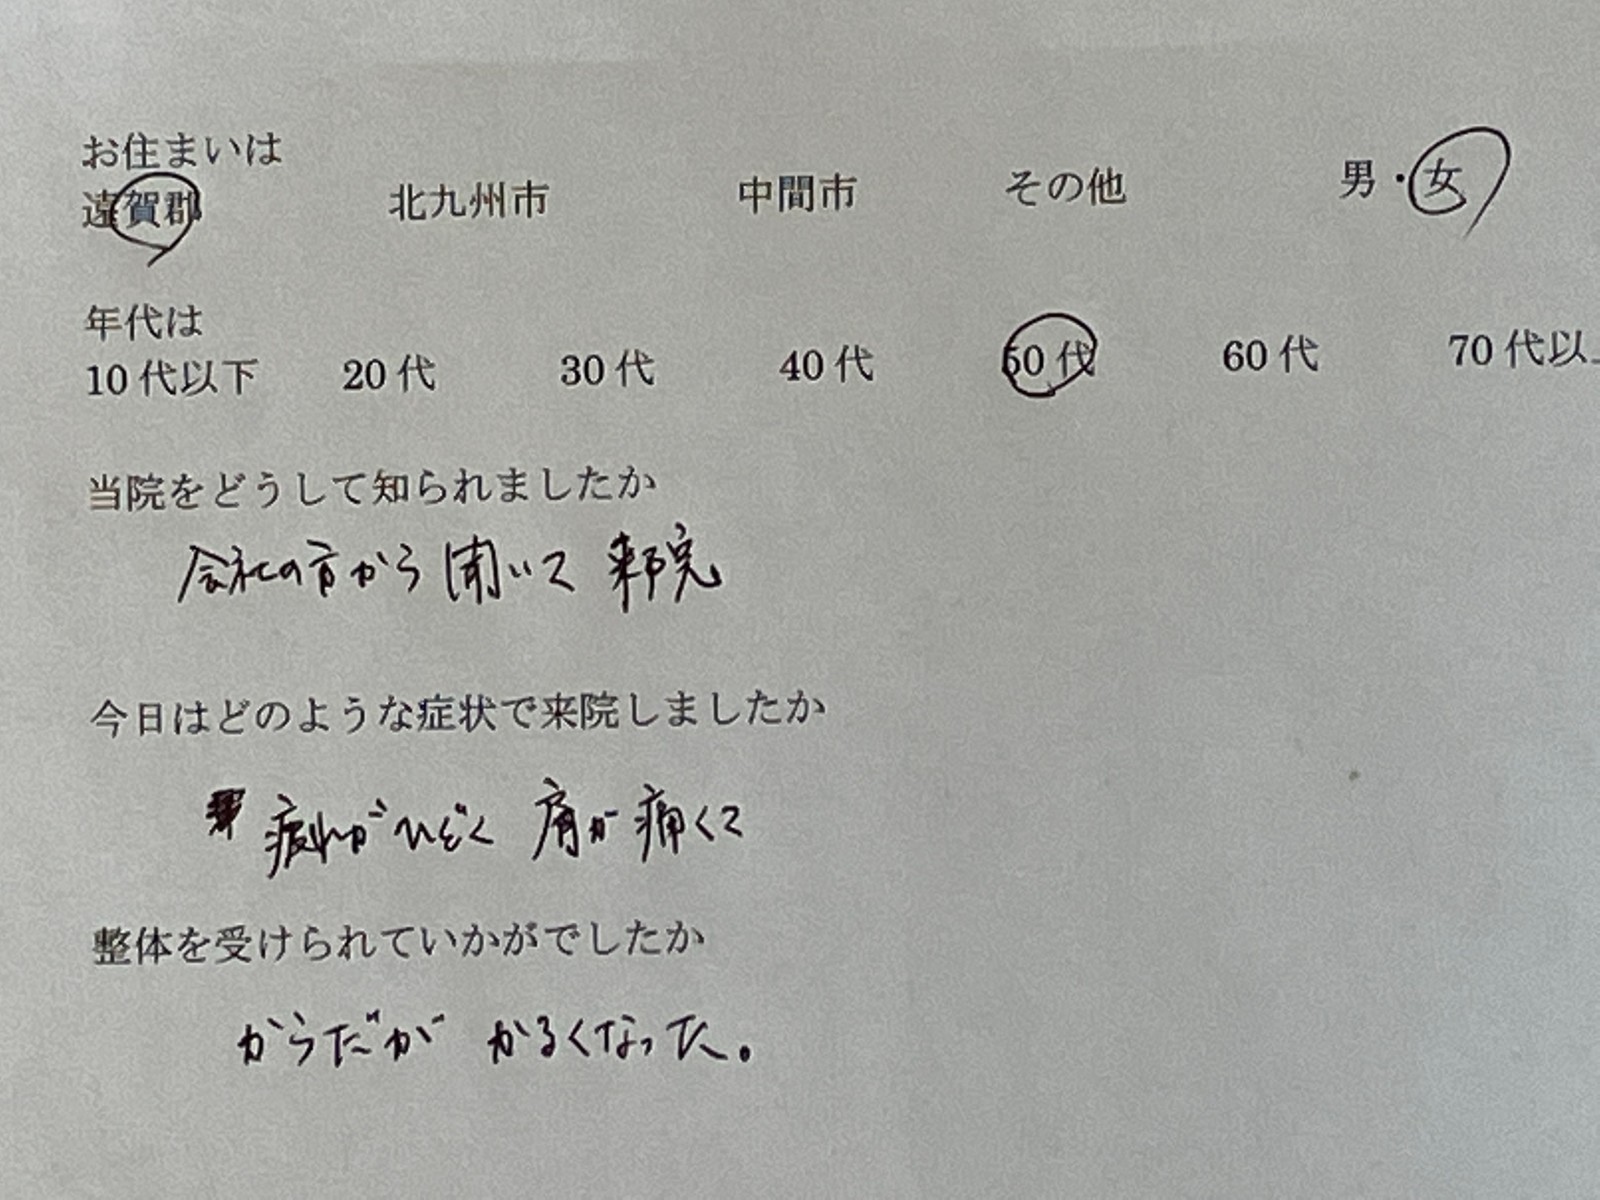 お住まいは
遠賀郡 北九州市 中間市 その他 男・女
年代は
10代以下 20代 30代 40代 50代 60代 70代以
当院をどうして知られましたか
会社の方から聞いて 来院
今日はどのような症状で来院しましたか
疲れがひどく 肩が痛くて
整体を受けられていかがでしたか
からだが かるくなった。